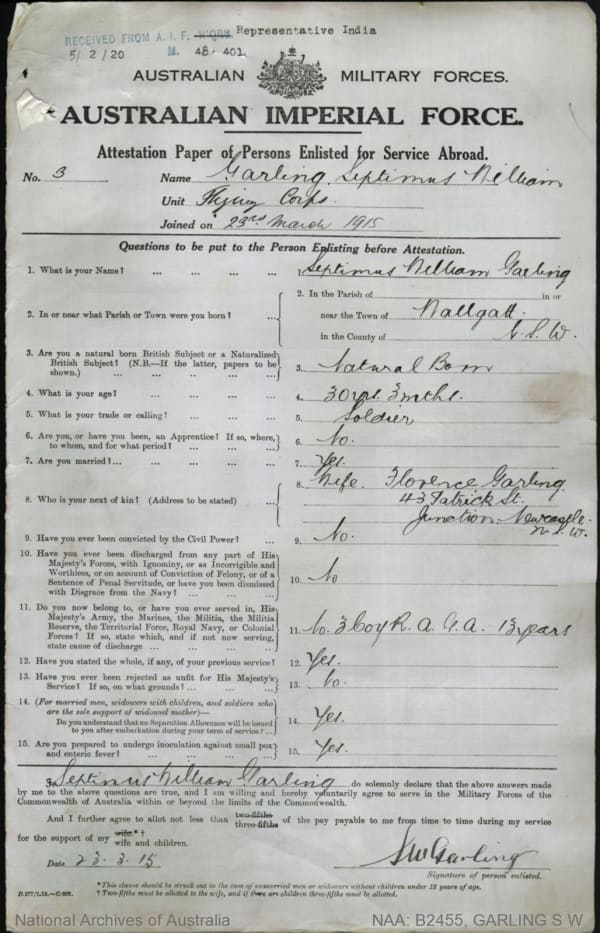 Representative India
RECEIVED FROM A.I.F. H'QRS.
5/2/20 M. 48. 401.
AUSTRALIAN MILITARY FORCES.
AUSTRALIAN IMPERIAL FORCE.
Attestation Paper of Persons Enlisted for Service Abroad.
No. 3 Name Garling, Septimus William
Unit Flying Corps.
Joined on 23rd March 1915
Questions to be put to the Person Enlisting before Attestation.
1. What is your Name? ... ... ... ... 1. Septimus William Garling
2. In or near what Parish or Town were you born? ... 2. In the Parish of in or
near the Town of Wallgatt
in the County of N.S.W.
3. Are you a natural born British Subject or a Naturalized
British Subject? (N.B.—If the latter, papers to be
shown.) ... ... ... ... ... 3. Natural Born
4. What is your age? ... ... ... ... 4. 30 yrs. 3 mths.
5. What is your trade or calling? ... ... ... 5. Soldier
6. Are you, or have you been, an Apprentice? If so, where,
to whom, and for what period? ... ... ... 6. No.
7. Are you married?... ... ... ... ... 7. Yes.
8. Who is your next of kin? (Address to be stated) ... 8. Wife. Florence Garling
43 Patrick St.
Junction, Newcastle.
N.S.W.
9. Have you ever been convicted by the Civil Power? ... 9. No.
10. Have you ever been discharged from any part of His
Majesty's Forces, with Ignominy, or as Incorrigible and
Worthless, or on account of Conviction of Felony, or of a
Sentence of Penal Servitude, or have you been dismissed
with Disgrace from the Navy? ... ... ... 10. No
11. Do you now belong to, or have you ever served in, His
Majesty's Army, the Marines, the Militia, the Militia
Reserve, the Territorial Force, Royal Navy, or Colonial
Forces? If so, state which, and if not now serving,
state cause of discharge ... ... ... ... 11. No. 3 Coy R. A. G. A. 13 years
12. Have you stated the whole, if any, of your previous service? 12. Yes.
13. Have you ever been rejected as unfit for His Majesty's
Service? If so, on what grounds? ... ... ... 13. No.
14. (For married men, widowers with children, and soldiers who
are the sole support of widowed mother)—
Do you understand that no Separation Allowance will be issued
to you after embarkation during your term of service?... 14. Yes.
15. Are you prepared to undergo inoculation against small pox
and enteric fever? ... ... ... ... 15. Yes.
I, Septimus William Garling do solemnly declare that the above answers made
by me to the above questions are true, and I am willing and hereby voluntarily agree to serve in the Military Forces of the
Commonwealth of Australia within or beyond the limits of the Commonwealth.
And I further agree to allot not less than two-fifths three-fifths of the pay payable to me from time to time during my service
for the support of my wife*† wife and children.
Date 23.3.15 SWGarling
Signature of person enlisted.
* This clause should be struck out in the case of unmarried men or widowers without children under 18 years of age.
† Two-fifths must be allotted to the wife, and if there are children three-fifths must be allotted.
National Archives of Australia NAA: B2455, GARLING S W